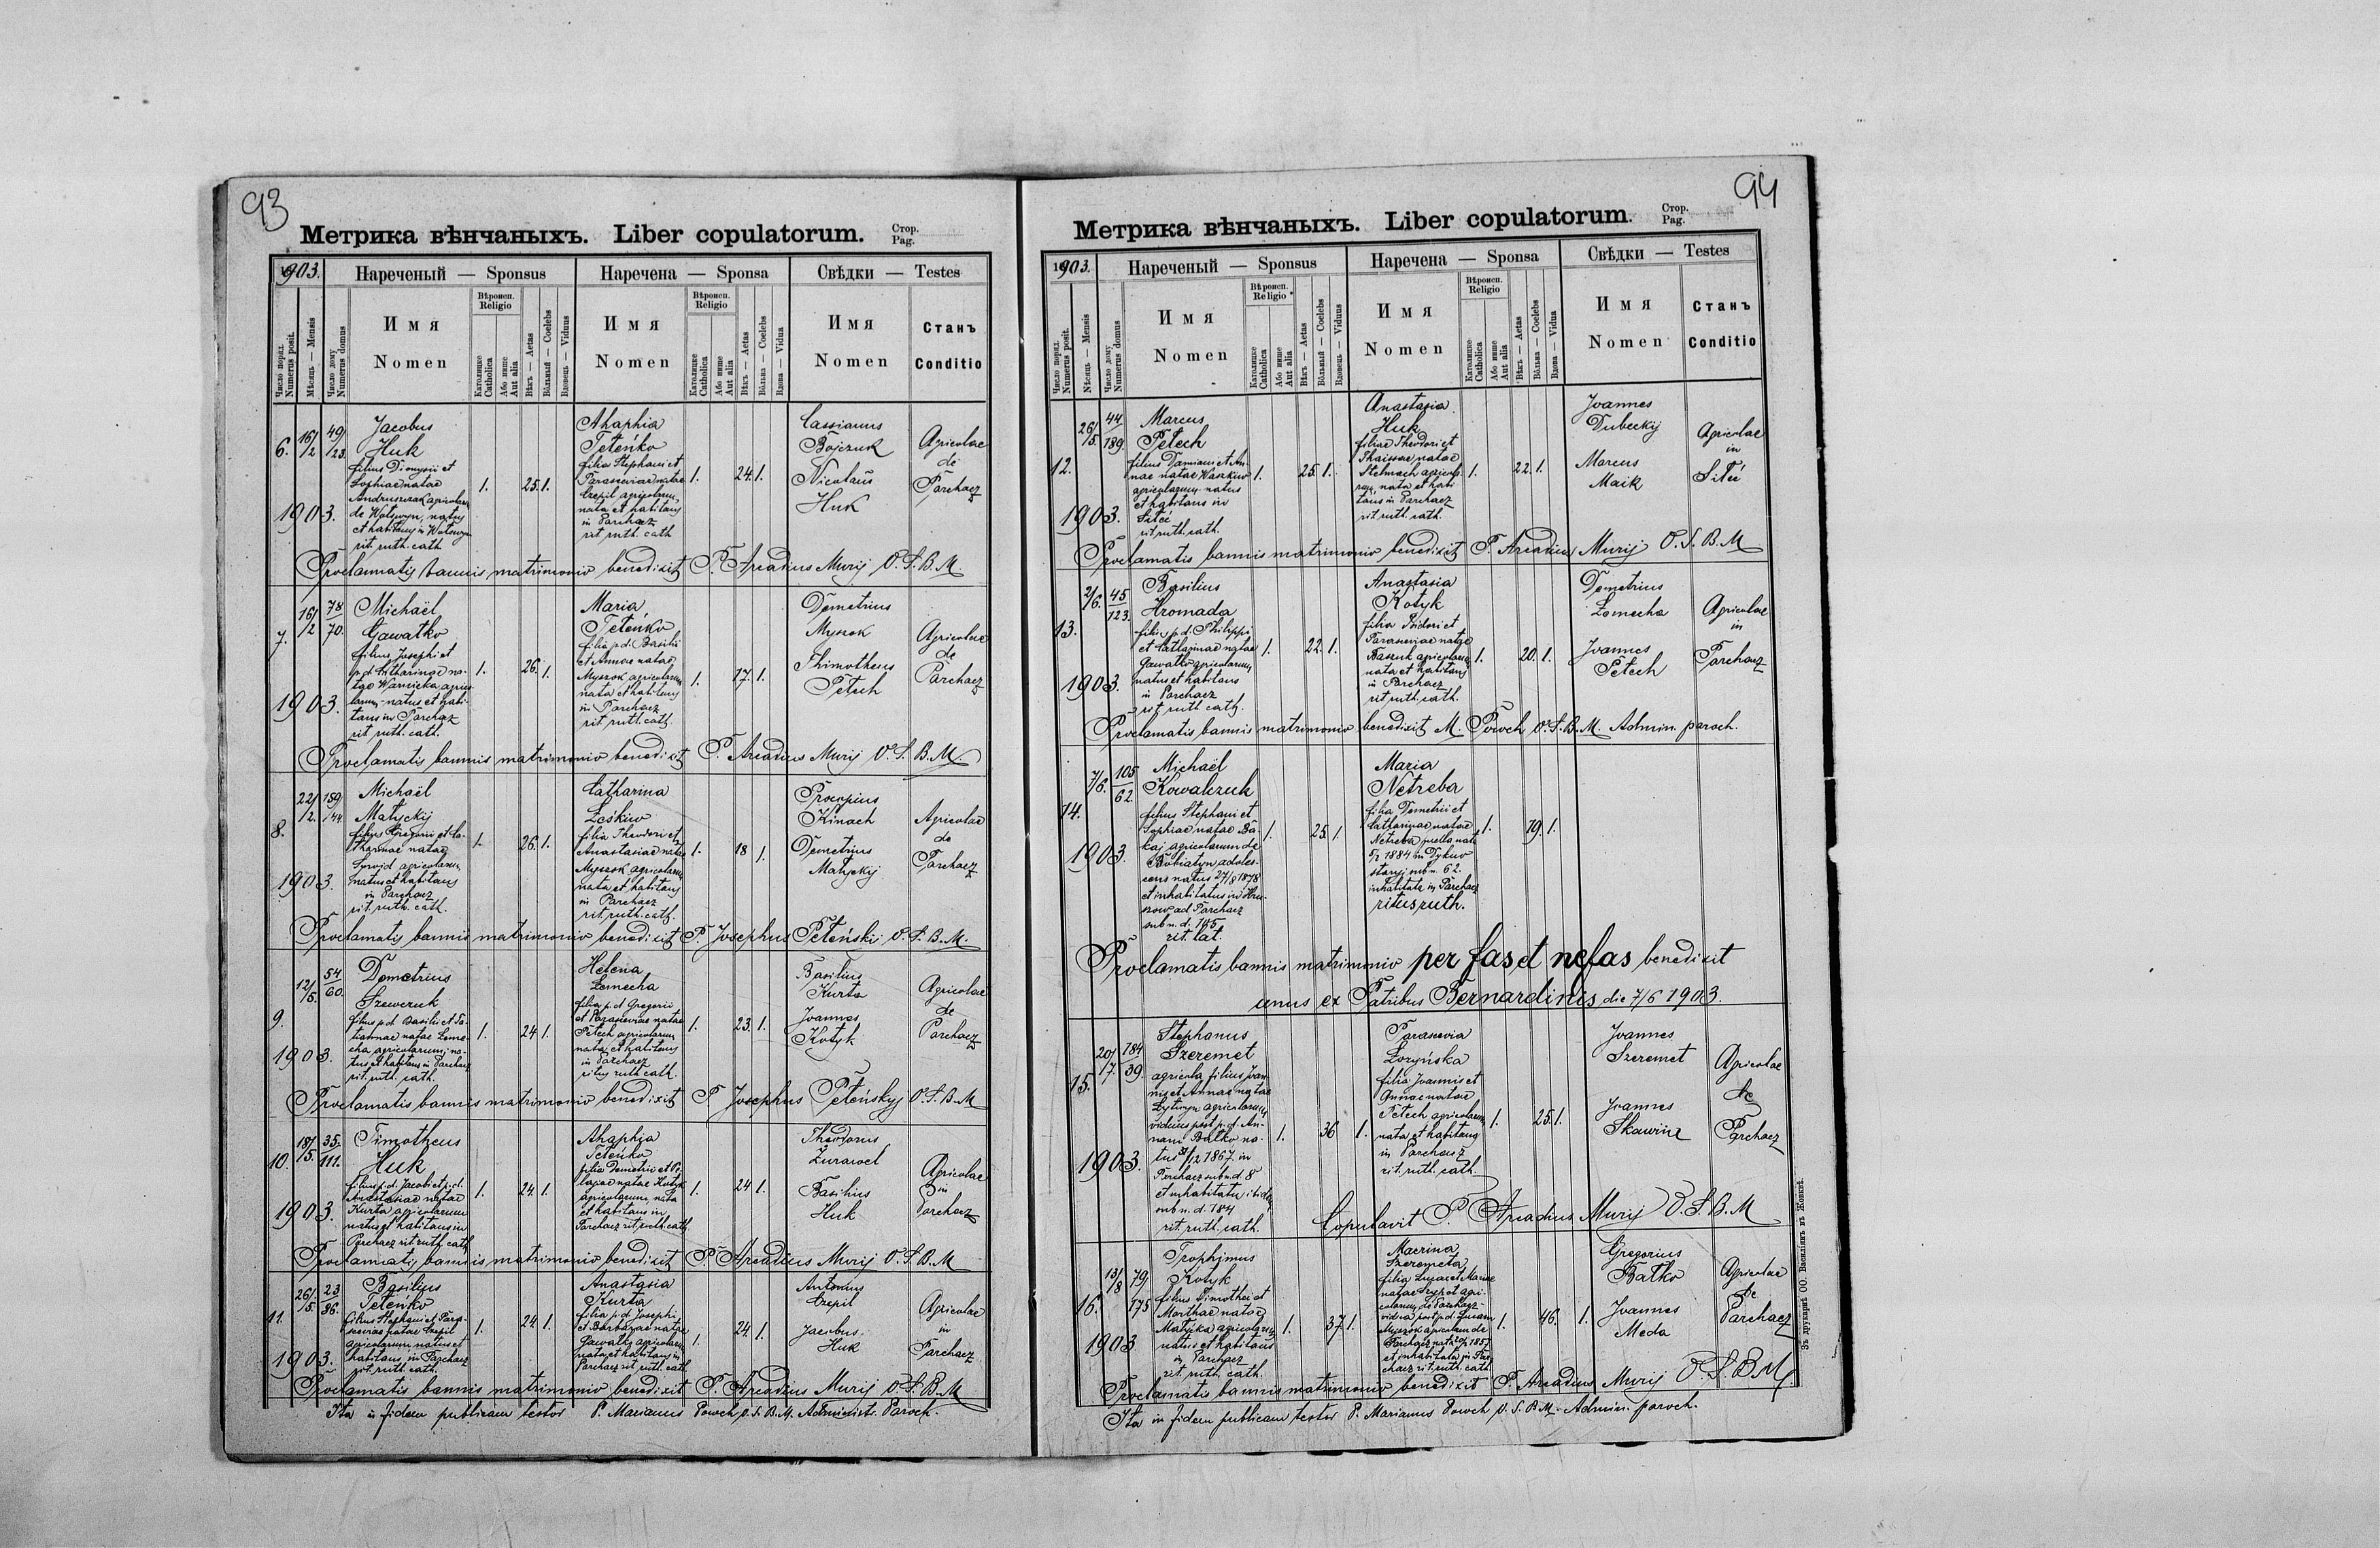 93
Метрика вѣнчаныхъ. Liber copulatorum. Стор. Pag.
1903. Нареченый — Sponsus Наречена — Sponsa Свѣдки — Testes
Число поряд. Numerus posit.
Мѣсяць — Mensis
Число дому Numerus domus
Имя Nomen
Вѣроисп. Religio
Католицке Catholica
Або инше Aut alia
Вѣкъ — Aetas
Вôльный — Coelebs
Вдовець — Viduus
Имя Nomen
Вѣроисп. Religio
Католицке Catholica
Або инше Aut alia
Вѣкъ — Aetas
Вôльна — Coelebs
Вдова — Vidua
Имя Nomen
Станъ Conditio
6. 16/2 1903. 49/123.
Jacobus
Huk
filius Dionysii et
Sophiae natae
Andruszczak agricolarum
de Wolswyn, natus
et habitans in Wolswyn
rit. ruth. cath
1. 25. 1.
Ahaphia
Teteńko
filia Stephani et
Parasceviae natae
Czepil agricolarum,
nata et habitans
in Parchacz
rit. ruth. cath
1. 24. 1.
Cassianus
Bojczuk
Nicolaus
Huk
Agricolae
de
Parchacz
Proclamatis bannis matrimonio benedixit P. Arcadius Muryj O. S. B. M.
7. 16/2 1903. 78/70.
Michaël
Gawałko
filius Josephi et
p. d. Catharinae na-
tae
agrico-
larum, natus et habi-
tans in Parchacz
rit. ruth. cath.
1. 26. 1.
Maria
Teteńko
filia p. d. Basilii
et Annae natae
Myszok agricolarum
nata et habitans
in Parchacz
rit. ruth. cath.
1. 17. 1.
Demetrius
Myszok
Thimotheus
Petech
Agricolae
de
Parchacz
Proclamatis bannis matrimonio benedixit P. Arcadius Muryj O. S. B. M.
8. 22/2. 1903. 189/44.
Michaël
Matyckij
filius Gregorii et Ca-
tharinae natae
agricolarum
natus et habitans
in Parchacz
rit. ruth. cath.
1. 26. 1.
Catharina
Leśkiw
filia Theodori et
Anastasiae natae
Myszok agricolarum
nata et habitans
in Parchacz
rit. ruth. cath.
1. 18 1.
Procopius
Kinach
Demetrius
Matyckij
Agricolae
de
Parchacz
Proclamatis bannis matrimonio benedixit P. Josephus Peteńskij O. S. B. M.
9. 12/5. 1903. 54/60.
Demetrius
Szewczuk
filius p. d. Basilii et Ta-
tiannae natae Leme-
cha agricolarum, na-
tus et habitans in Parchacz
rit. ruth. cath.
1. 24. 1.
Helena
Lemecha
filia p. d. Gregorii
et Parasceviae natae
Petech agricolarum
nata et habitans
in Parchacz
ritus ruth. cath.
1. 23. 1.
Basilius
Kurta
Joannes
Kotyk
Agricolae
de
Parchacz
Proclamatis bannis matrimonio benedixit P Josephus Peteńskyj O. S. B. M
10. 18/5. 1903. 35./111.
Timotheus
Huk
filius p. d. Jacobi et p. d.
Anastasiae natae
Kurta agricolarum
natus et habitans in
Parchacz rit. ruth. cath
1. 24. 1.
Ahaphia
Teteńko
filia Demetrii et Pe-
lagiae natae Kotyk
agricolarum, nata
et habitans in
Parchacz rit. ruth. cath.
1. 24 1.
Theodorus
Żurawel
Basilius
Huk
Agricolae
in
Parchacz
Proclamatis bannis matrimonio benedixit P. Arcadius Muryj O. S. B. M
11. 26/5. 1903. 23/86.
Basilius
Teteńko
filius Stephani et Para-
sceviae natae Czepil
agricolarum, natus et
habitans in Parchacz
rit. ruth. cath.
1. 24. 1.
Anastasia
Kurta
filia p. d. Josephi
et Barbarae natae
Gawałko agricolarum
nata et habitans in
Parchacz rit. ruth. cath
1. 24. 1.
Antonius
Czepil
Jacobus
Huk
Agricolae
in
Parchacz
Proclamatis bannis matrimonio benedixit P. Arcadius Muryj O. S. B. M
Ita in fidem publicam testor P. Marianus Powch O. S. B. M. Administr. Paroch.
94
Метрика вѣнчаныхъ. Liber copulatorum. Стор. Pag.
1903. Нареченый — Sponsus Наречена — Sponsa Свѣдки — Testes
Число поряд. Numerus posit.
Мѣсяць — Mensis
Число дому Numerus domus
Имя Nomen
Вѣроисп. Religio
Католицке Catholica
Або инше Aut alia
Вѣкъ — Aetas
Вôльный — Coelebs
Вдовець — Viduus
Имя Nomen
Вѣроисп. Religio
Католицке Catholica
Або инше Aut alia
Вѣкъ — Aetas
Вôльна — Coelebs
Вдова — Vidua
Имя Nomen
Станъ Conditio
12. 26/5. 1903. 44/189.
Marcus
Petech
filius Damiani et An-
nae natae Waskiw
agricolarum natus
et habitans in
Siteć
rit. ruth. cath.
1. 25. 1.
Anastasia
Huk
filiae Theodori et
Thaissae natae
Stelmach agricola-
rum, nata et habi
tans in Parchacz
rit. ruth. cath.
1. 22. 1.
Joannes
Dubeckij
Marcus
Maik
Agricolae
in
Siteć
Proclamatis bannis matrimonio benedixit P. Arcadius Muryj O. S. B. M
13. 2/6. 1903. 45/123.
Basilius
Hromada
filius p. d. Philippi
et Catharinae natae
Gawałko agricolarum
natus et habitans
in Parchacz
rit ruth cath.
1. 22. 1.
Anastasia
Kotyk
filia Isidori et
Parasceviae natae
Baszuk agricolarum
nata et habitans
in Parchacz
rit ruth. cath.
1. 20. 1.
Demetrius
Lemecha
Joannes
Petech
Agricolae
in
Parchacz
Proclamatis bannis matrimonio benedixit M. Powch O. S. B. M. Admin. paroch.
14. 7/6. 1903. 105/62.
Michaël
Kowalczuk
filius Stephani et
Sophiae natae Ba-
kaj agricolarum de
Bobiatyn, adoles-
cens natus 27/8 1878
et inhabitatus in
ad Parchacz
sub n. d. 105
rit. lat.
1. 25. 1
Maria
Netreba
filia Demetrii et
Catharinae natae
Netreba puella nata
5/2 1884 in Dytkow
staryj sub n. 62.
inhabitata in Parchacz
ritus ruth.
1. 19. 1.
Proclamatis bannis matrimonio per fas et nefas benedixit
unus ex Patribus Bernardinis die 7/6 1903.
15. 20/7. 1903. 184/39.
Stephanus
Szeremet
agricola filius Joan-
nis et Annae natae
Łytwyn agricolarum
viduus post p. d. An-
nam Bałko na-
tus 1867. in
Parchacz sub n. d. 8
et inhabitatus ibidem
sub n. d. 184
rit. ruth. cath.
1. 36 1.
Parascevia
Łozyńska
filia Joannis et
Annae natae
Petech agricolarum
nata et habitans
in Parchacz
rit. ruth. cath.
1. 25. 1.
Joannes
Szeremet
Joannes
Skawinz
Agricolae
de
Parchacz
Copulavit P. Arcadius Muryj O. S. B. M
16. 13/8 1903 79/175
Trophimus
Kotyk
filius Timothei et
Marthae natae
Matyjka agricolarum
natus et habitans
in Parchacz
rit. ruth. cath.
1. 37. 1.
Macrina
Szeremeta
filia Lucae et Mariae
natae agri-
colarum de Parchacz
vidua post p. d. Lucam
Myszok agricolam de
Parchacz nata 1857
et inhabitata in Par-
chacz rit. ruth. cath.
1. 46. 1.
Gregorius
Bałko
Joannes
Meda
Agricolae
de
Parchacz
Proclamatis bannis matrimonio benedixit P. Arcadius Muryj O. S. B. M.
Ita in fidem publicam testor P. Marianus Powch O. S. B. M. Admin. paroch.
Зъ друкарнѣ ОО. Василіянъ въ Жовквѣ.